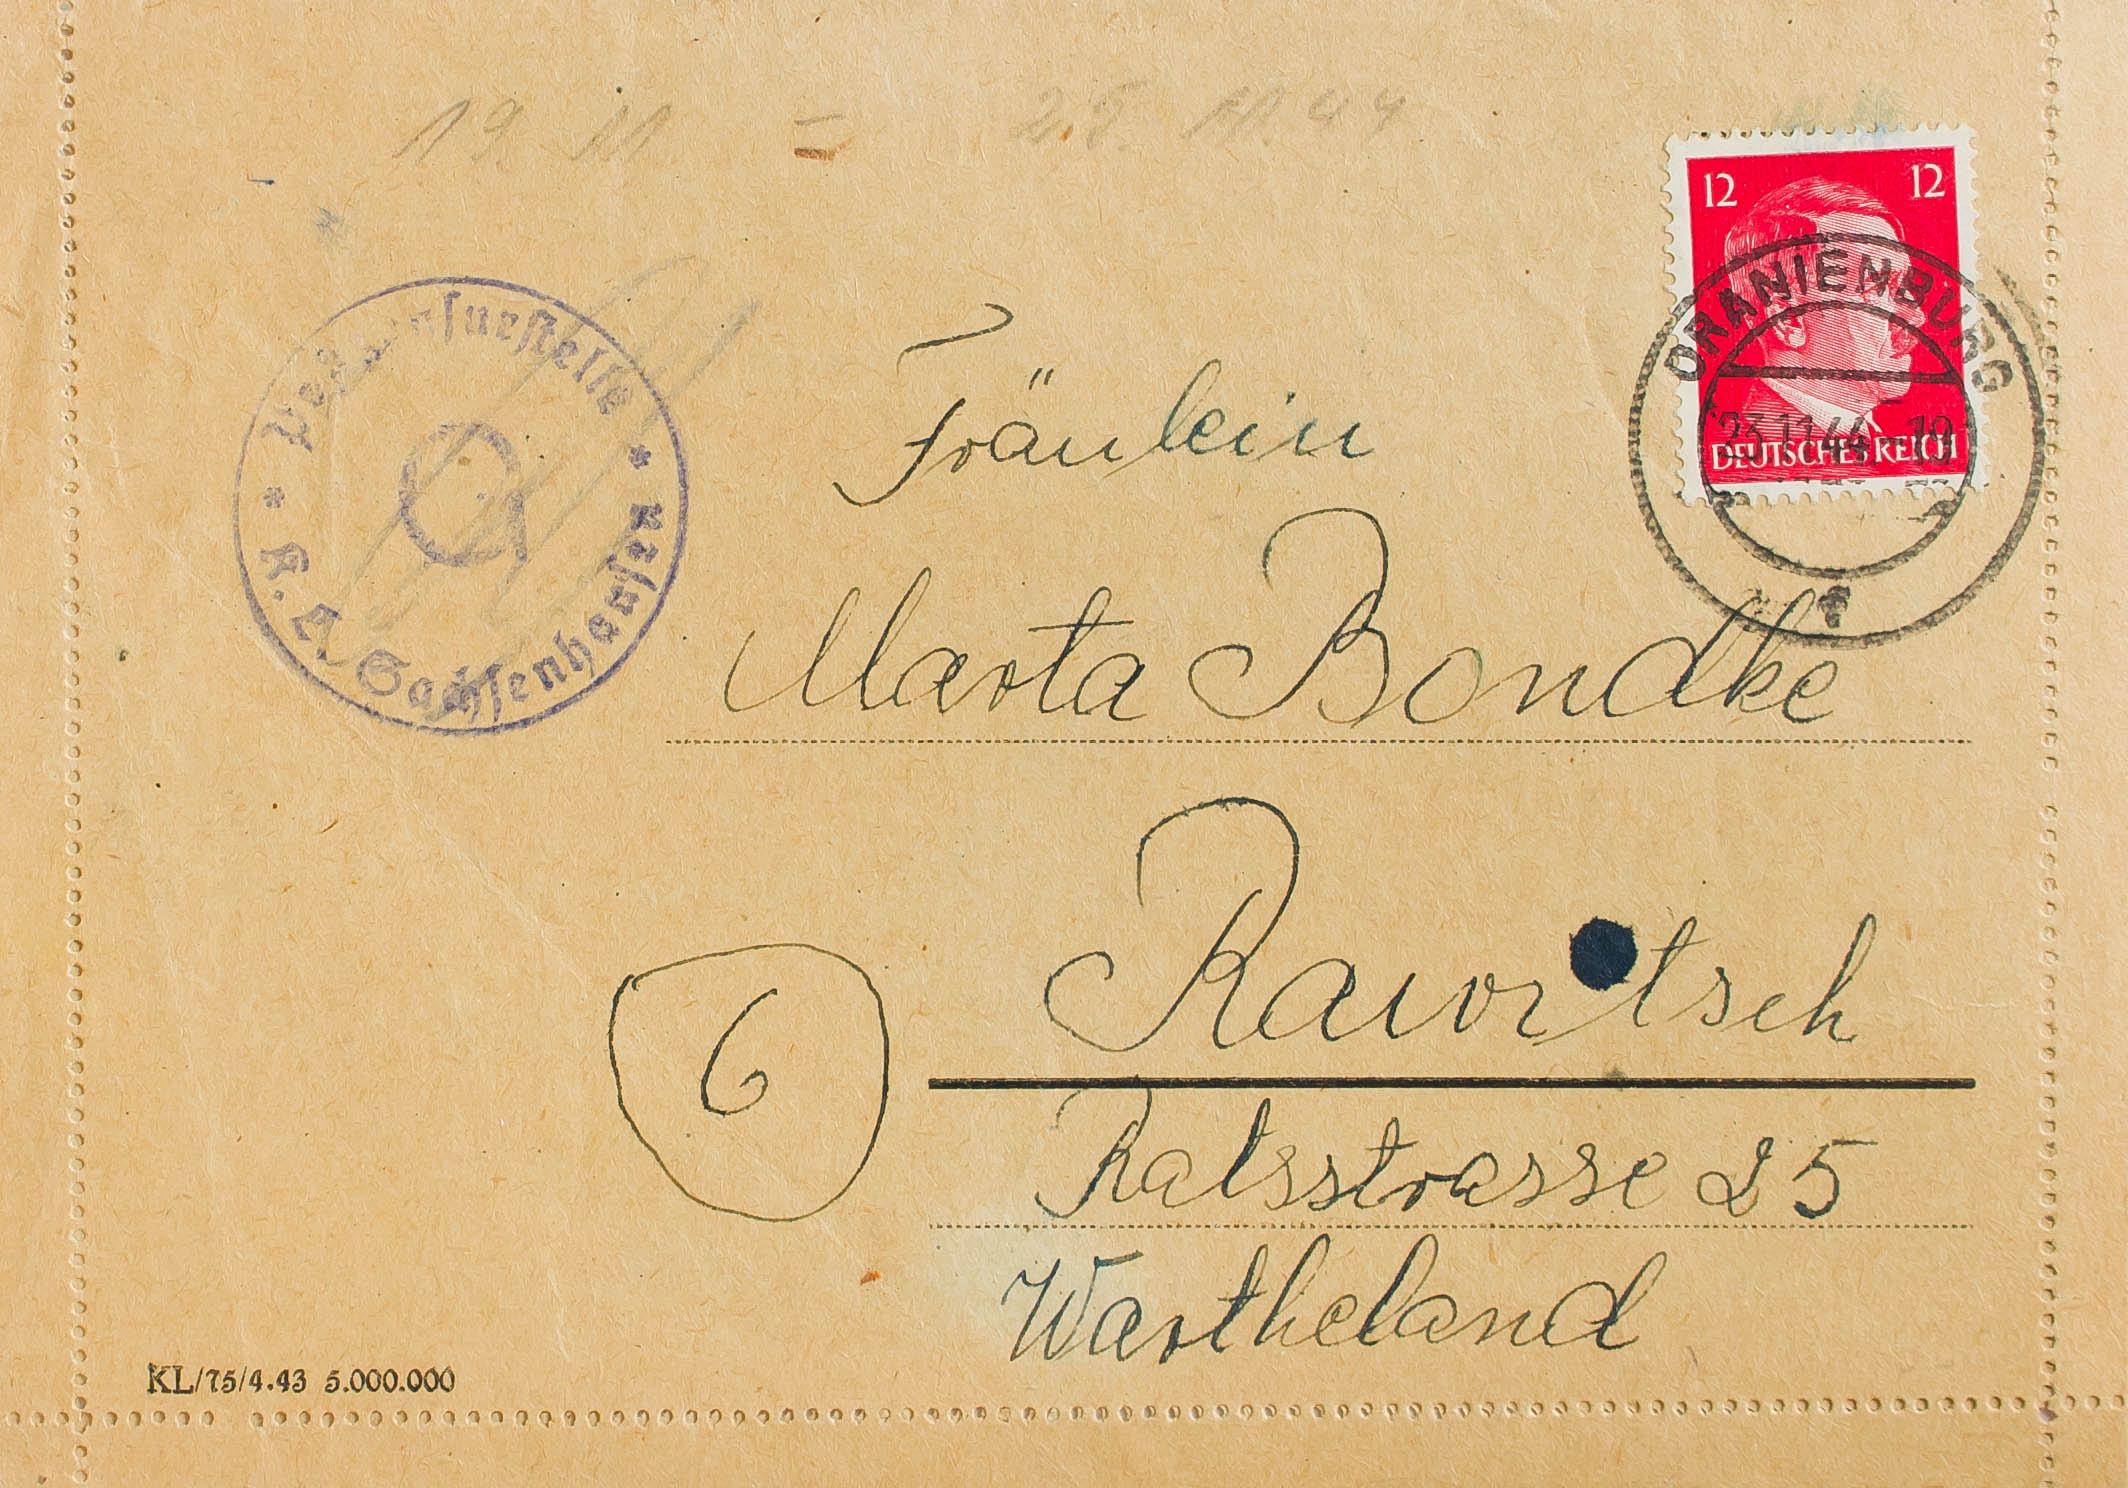 19. 11 = 25. 11. 44
12 12
ORANIENBURG
23.11.44.-19
DEUTSCHES REICH
Postzensurstelle
* K. L. Sachsenhausen *
Fräulein
Marta Bondke
Rawitsch
6
Ratsstrasse 25
Wartheland
KL/75/4.43 5.000.000